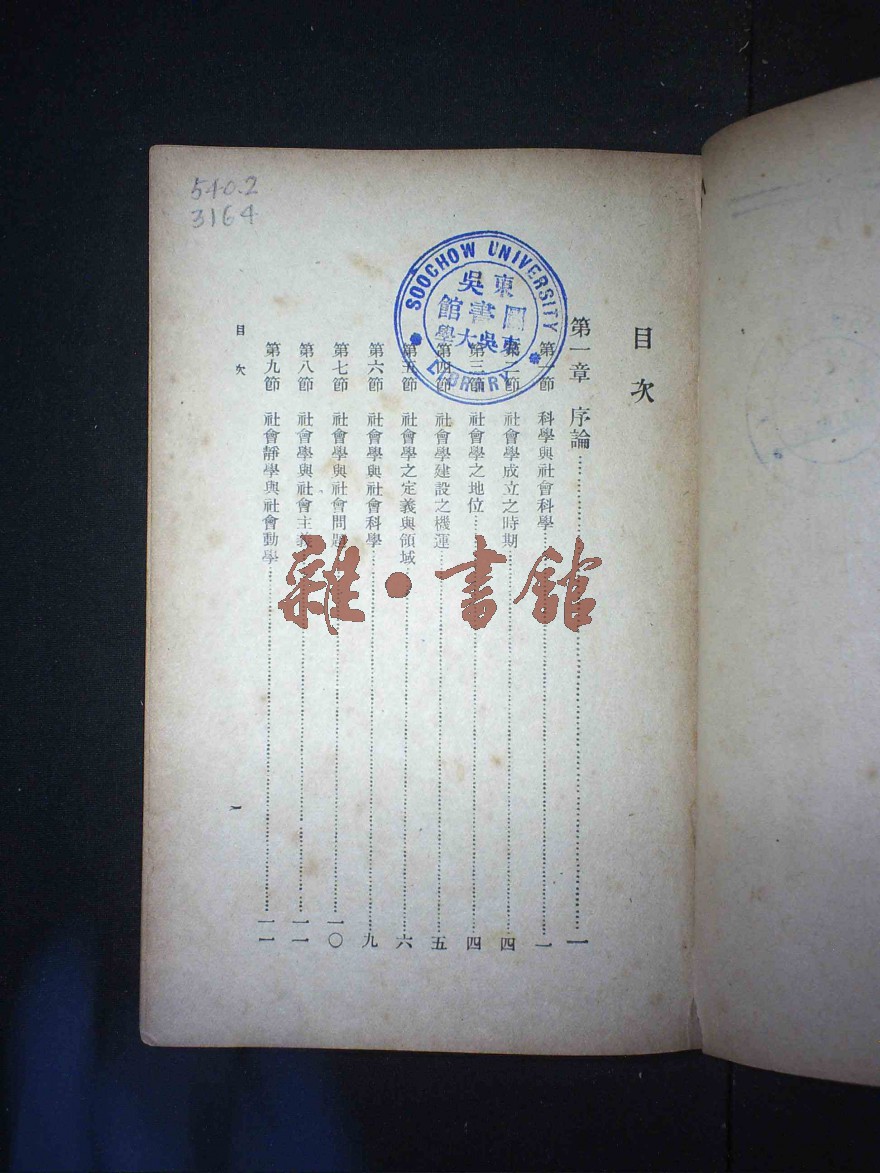 540.2
3164
SOOCHOW UNIVERSITY
LIBRARY
東吳
圖書館
東吳大學
目次
第一章 序論……一
第一節 科學與社會科學……一
第二節 社會學成立之時期……四
第三節 社會學之地位……四
第四節 社會學建設之機運……五
第五節 社會學之定義與領域……六
第六節 社會學與社會科學……九
第七節 社會學與社會問題……一〇
第八節 社會學與社會主義……一一
第九節 社會靜學與社會動學……一一
目次
一
雜·書館